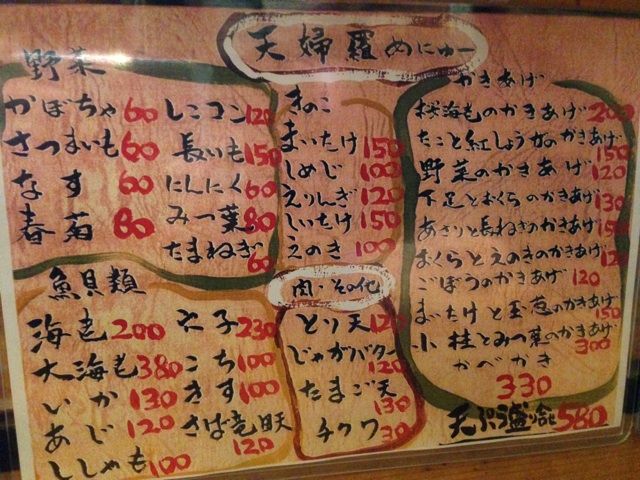 天婦羅めにゅー
野菜
かぼちゃ 60
さつまいも 60
なす 60
春菊 80
レンコン 120
長いも 150
にんにく 60
みつ葉 80
たまねぎ 60
きのこ
まいたけ 150
しめじ 100
えりんぎ 120
しいたけ 150
えのき 100
かきあげ
桜海老のかきあげ 200
たこと紅しょうがのかきあげ 150
野菜のかきあげ 120
下足とおくらのかきあげ 130
あさりと長ねぎのかきあげ 150
おくらとえのきのかきあげ 120
ごぼうのかきあげ 120
まいたけと玉葱のかきあげ 150
小柱とみつ葉のかきあげ 300
かべかき
330
天ぷら盛合 580
魚貝類
海老 200
大海老 380
いか 130
あじ 120
ししゃも 100
穴子 230
こち 100
きす 100
さば竜田 120
肉・その他
とり天 120
じゃがバター 120
たまご天 130
チクワ 30